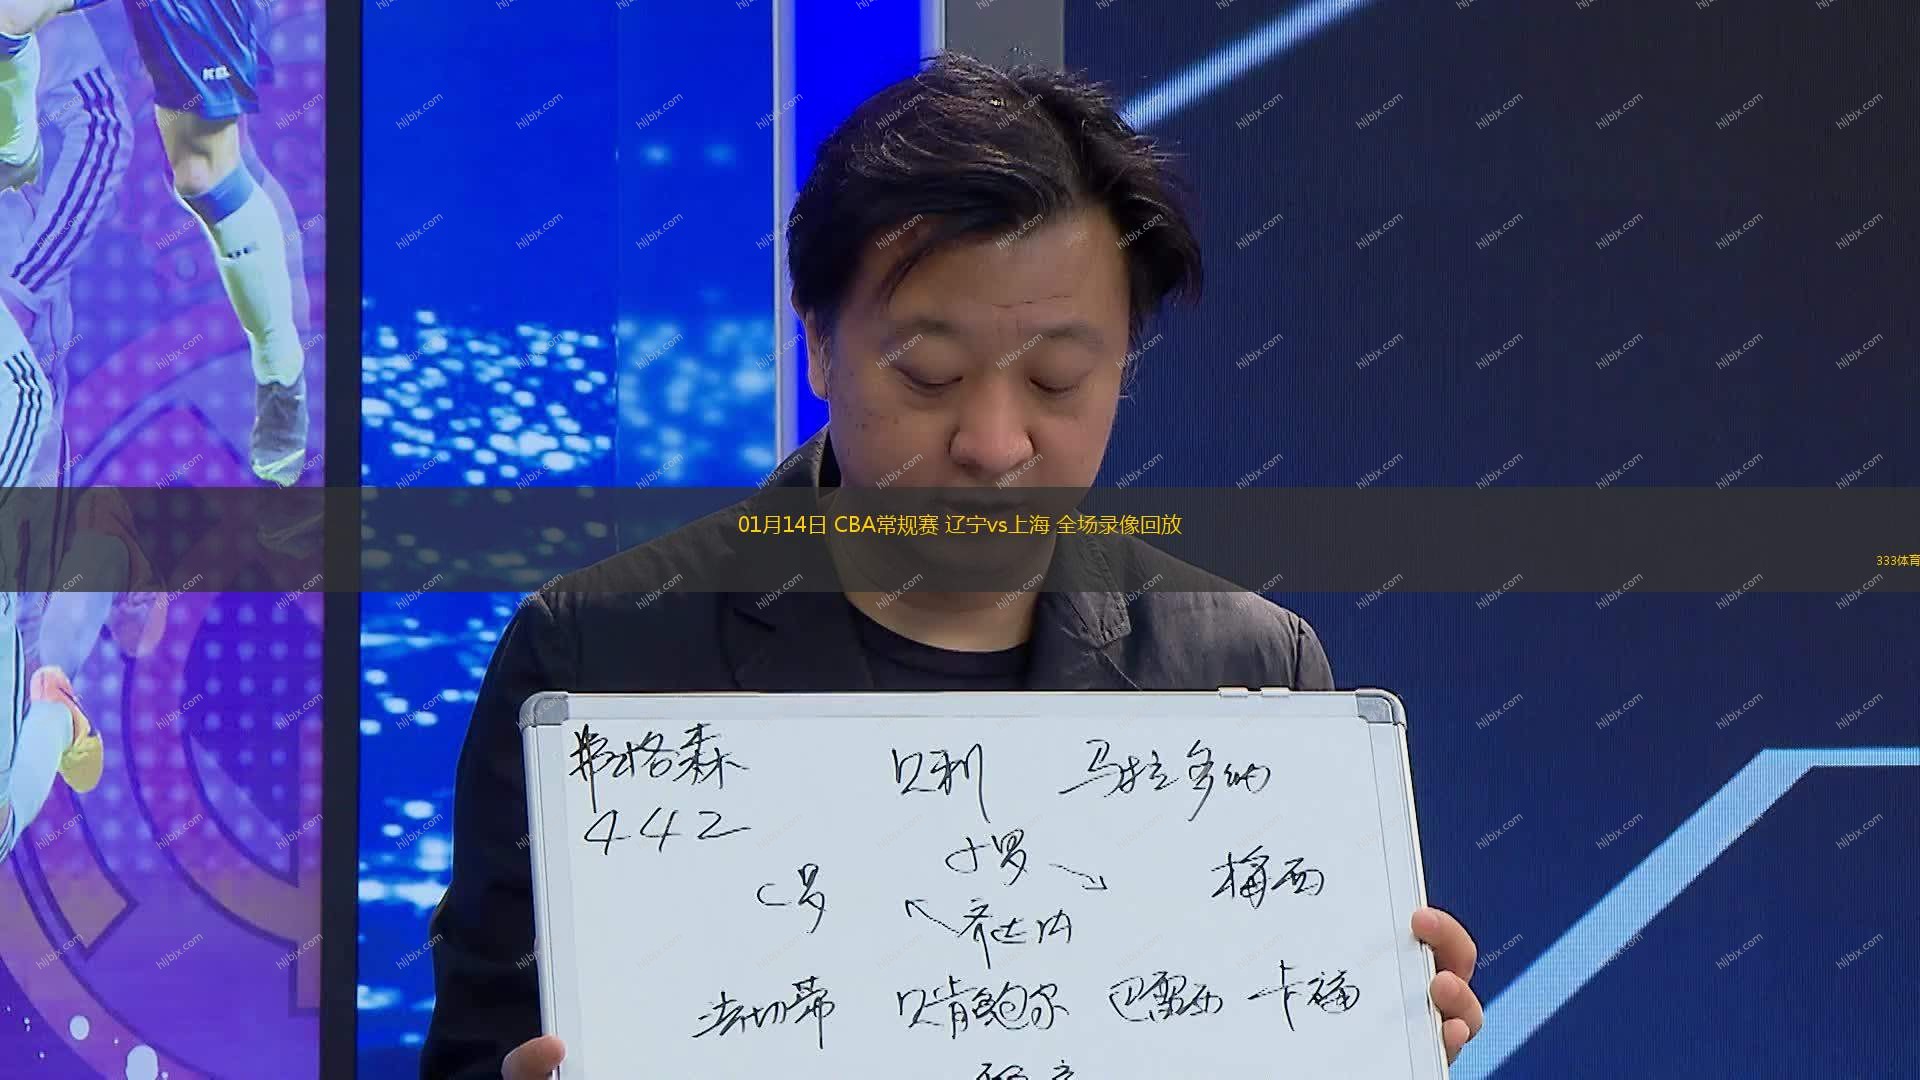 01月14日 CBA常规赛 辽宁vs上海 全场录像回放
333体育
弗格森 贝利 马拉多纳
442
小罗
C罗 梅西
齐达内
法切蒂 贝肯鲍尔 巴雷西 卡福
hljbjx.com
KE